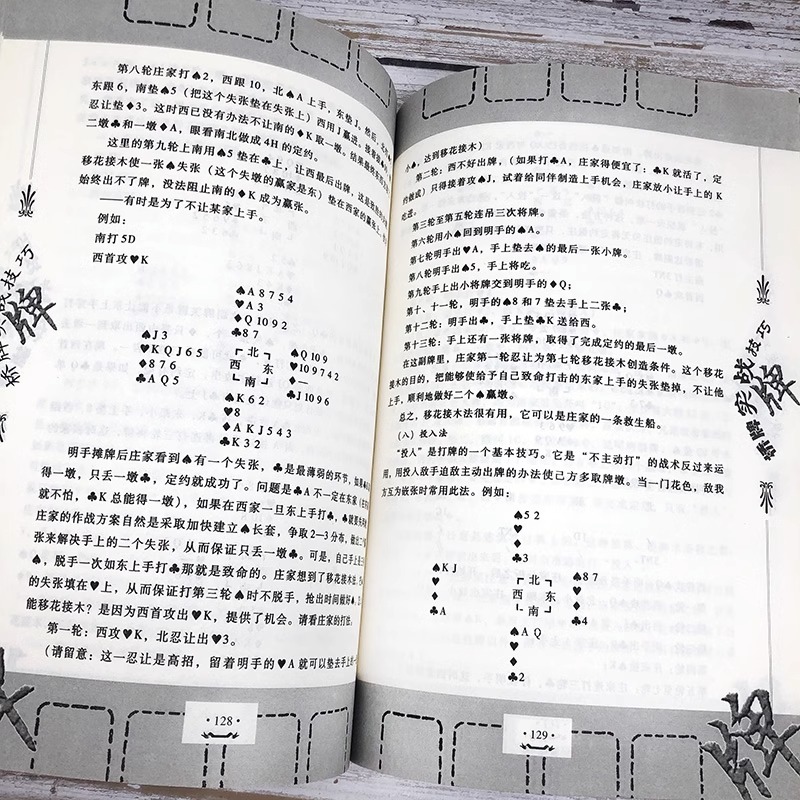 第八轮庄家打♠2，西跟10，北♠A上手，东垫J。然后，
东跟6，南垫♠5（把这个失张垫在失张上）西用J赢进。接着
忍让垫♦3。这时西已没有办法不让南的♦K取一墩。结果
二墩♣和一墩♦A，眼看南北做成4H的定约。
这里的第九轮上南用♠5垫在♣上，让西最后出牌，这是
移花接木使一张♠失张（这个失墩的赢家是东）垫在西家的
始终出不了牌，没法阻止南的♦K成为赢张。
——有时是为了不让某家上手。
例如：
南打5D
西首攻♥K
♠A8754
♥A3
♦Q1092
♣87
♠J3
♥KQJ65
♦876
♣AQ5
北
西 东
南
♠Q109
♥109742
♦—
♣J1096
♠K62
♥8
♦AKJ543
♣K32
明手摊牌后庄家看到♠有一个失张，♣是最薄弱的环节，如果
得一墩，只丢一墩♣，定约就成功了。问题是♣A不一定在东家
就不怕，♣K总能得一墩），如果在西家一旦东上手打♣，♣就要
庄家的作战方案自然是采取加快建立♠长套，争取2—3分布，做出二
张来解决手上的二个失张，从而保证只丢一墩♣。可是，自己手上是三
♠，脱手一次如东上手打♣那就是致命的。庄家想到了移花接木法，
的失张填在♥上，从而保证打第三轮♠时不脱手，抢出时间做好♠，
能移花接木？是因为西首攻出♥K，提供了机会。请看庄家的打法：
第一轮：西攻♥K，北忍让出♥3。
（请留意：这一忍让是高招，留着明手的♥A就可以垫去手上的一
·128·
小♠，达到移花接木）
第二轮：西不好出牌，（如果打♣A，庄家得便宜了：♣K就活了，定
约做成）只得接着攻♠J，试着给同伴制造上手机会，庄家放小让手上的K
吃进。
第三轮至第五轮连吊三次将牌。
第六轮用小♠回到明手的♠A。
第七轮明手出♥A，手上垫去♠的最后一张小牌。
第八轮明手出♠5，手上将吃。
第九轮手上出小将牌交到明手的♦Q；
第十、十一轮，明手的♠8和7垫去手上二张♣；
第十二轮：明手出♣，手上垫♣K送给西。
第十三轮：手上还有一张将牌，取得了完成定约的最后一墩。
在这副牌里，庄家第一轮忍让为第七轮移花接木创造条件。这个移花
接木的目的，把能够使给予自己致命打击的东家上手的失张垫掉，不让他
上手，顺利地做好二个♠赢墩。
总之，移花接木法很有用，它可以是庄家的一条救生船。
（八）投入法
“投入”是打牌的一个基本技巧。它是“不主动打”的战术反过来运
用，用投入敌手迫敌主动出牌的办法使己方多取牌墩。当一门花色，敌我
方互为嵌张时常用此法。例如：
♠52
♥
♦
♣3
♠KJ
♥
♦
♣A
北
西 东
南
♠87
♥
♦
♣4
♠AQ
♥
♦
♣2
·129·
桥牌实战技巧